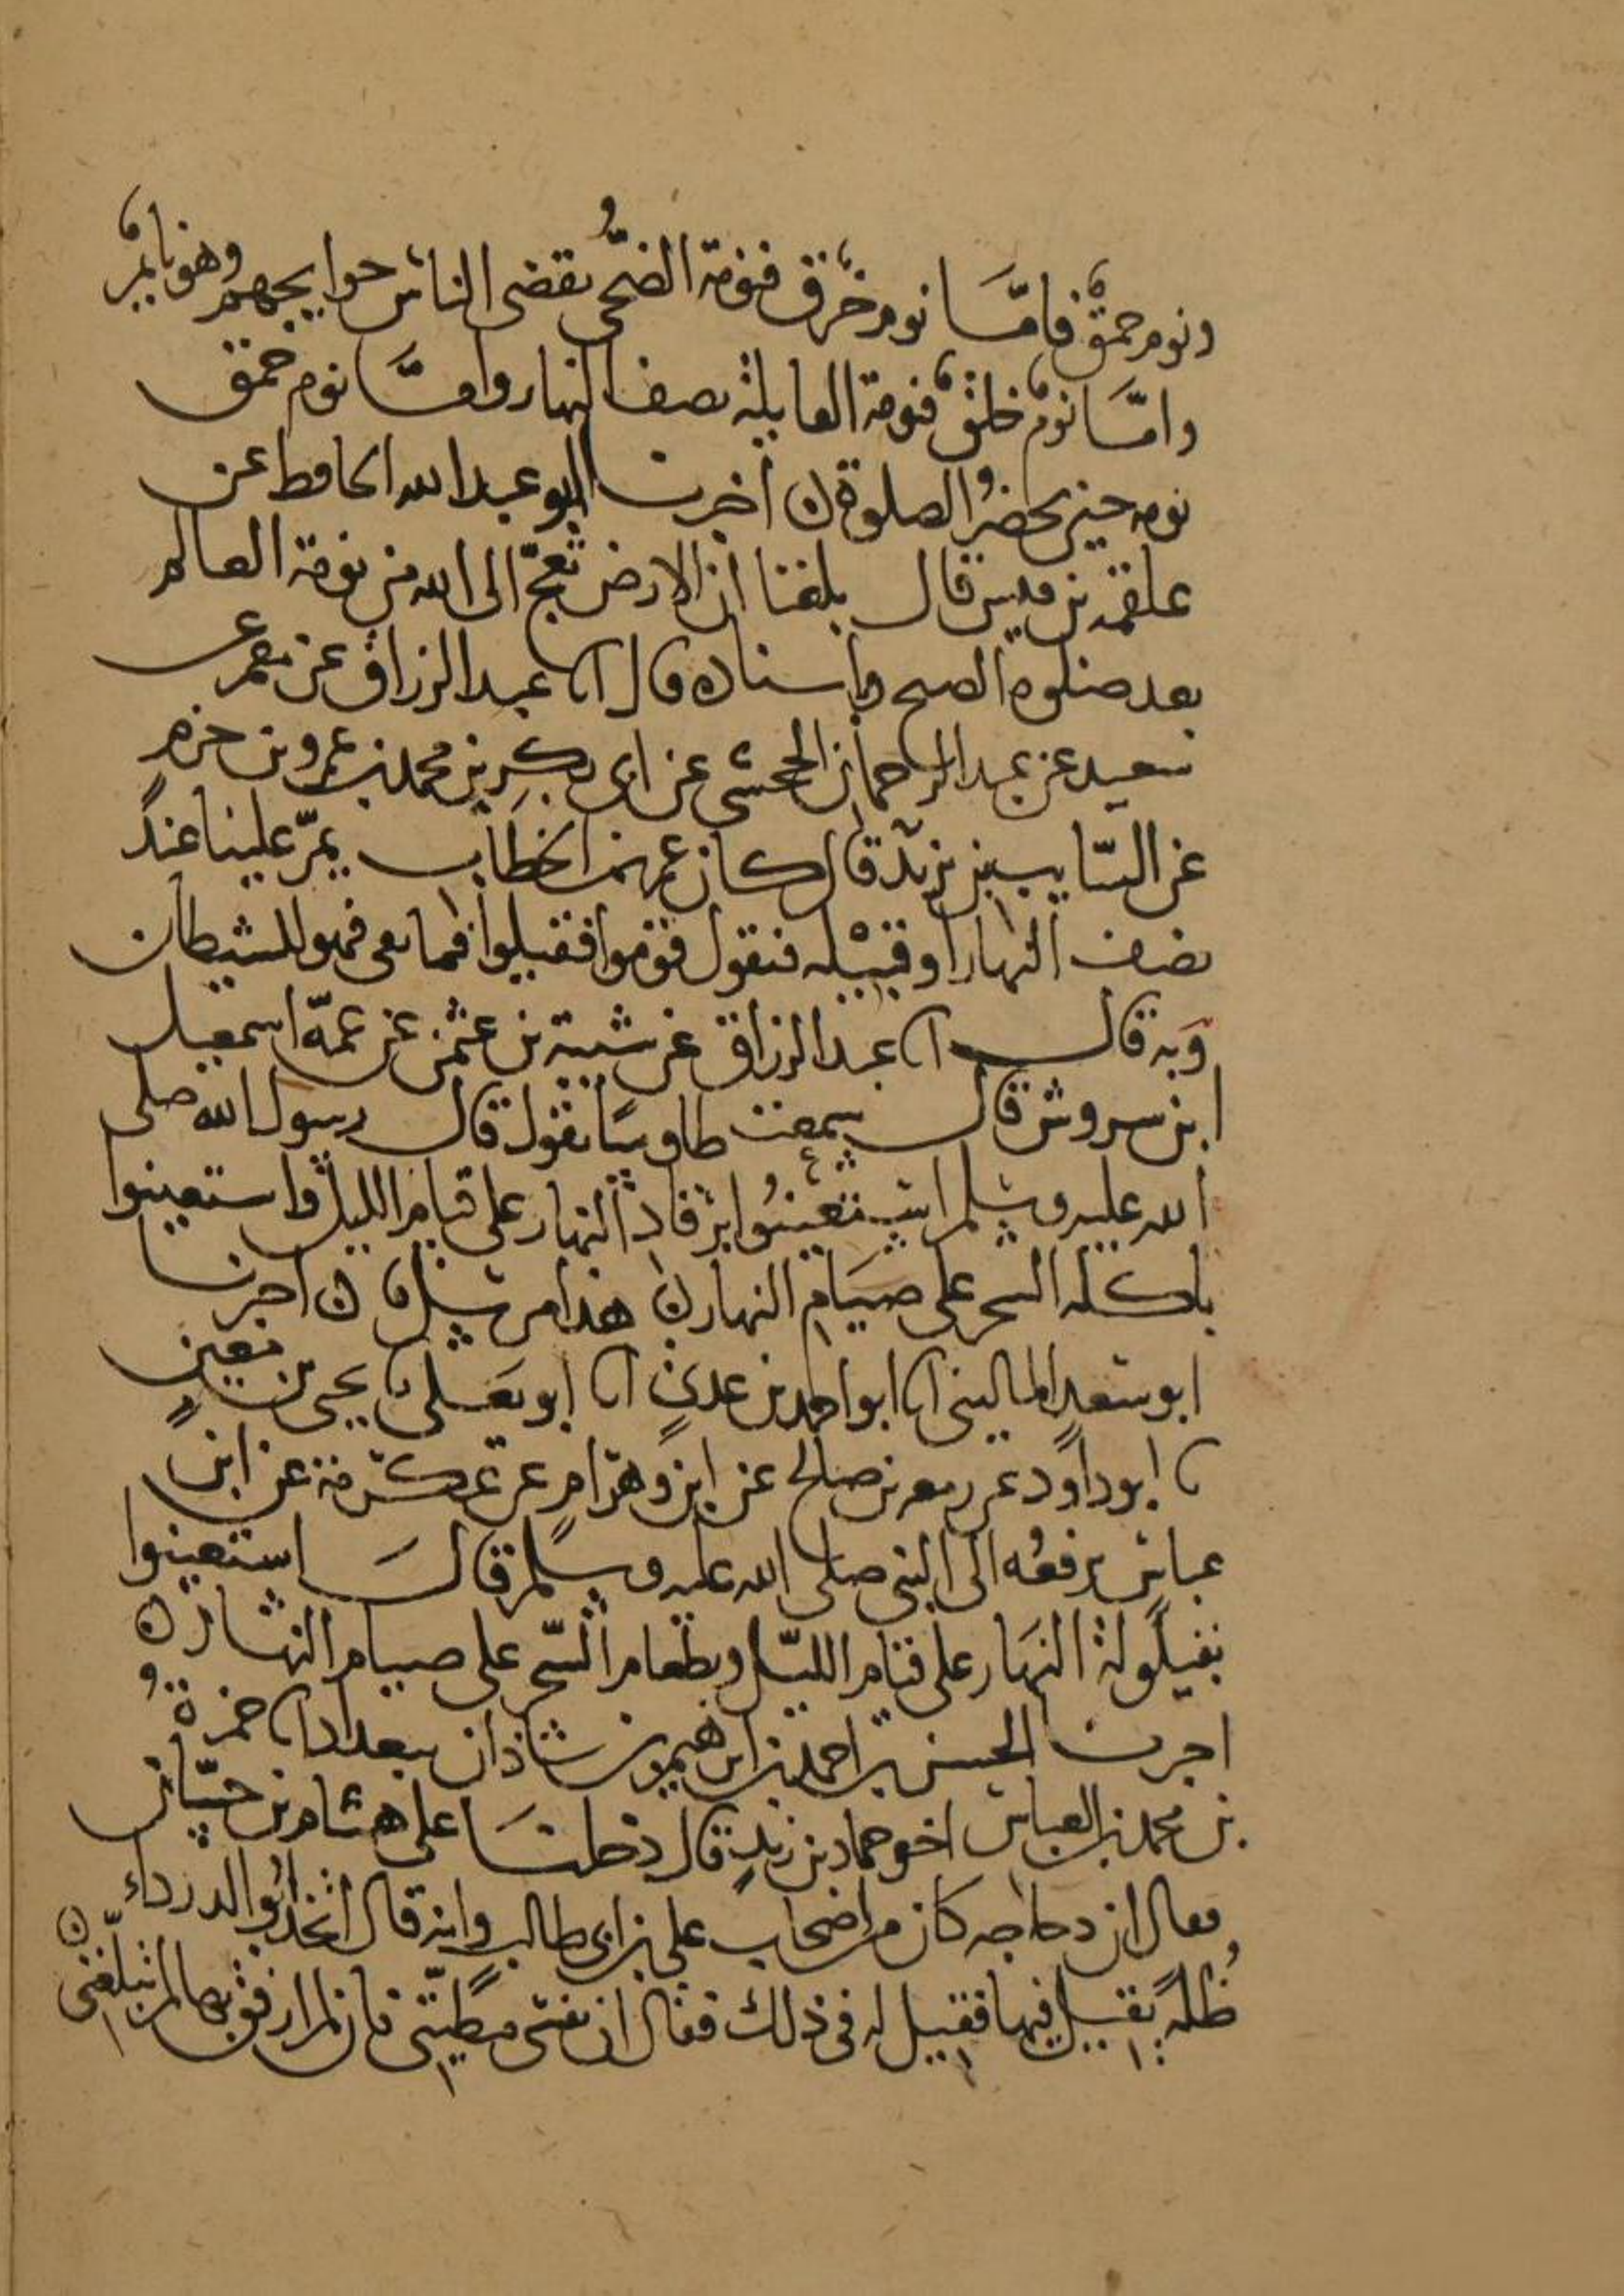 ونوم حمق فامّا نوم خرق فنومة الضحى يقضى الناس حوايجهم وهو نايم
وامّا نوم خلق فنومة القايلة نصف النهار وامّا نوم حمق
نومه حين يحضر الصلوة ن أخبرنا ابو عبد الله الحافظ عن
علقمة بن قيس قال بلغنا ان الارض تعجّ الى الله من نومة العالم
بعد صلوة الصبح وباسناده قال انا عبد الرزاق عن معمر عن
سعيد عن عبد الرحمان الجحشي عن ابى بكر بن محمد بن عمرو بن حزم
عن السّايب بن يزيد قال كان عمر بن الخطاب يمرّ علينا عند
نصف النهار او قبيله فيقول قوموا فقيلوا فما بقى فهو للشيطان
وبه قال انا عبد الرزاق عن شيبة بن عثمن عن عمّه اسمعيل
ابن سروش قال سمعت طاوسًا يقول قال رسول الله صلى
الله عليه وسلم استعينوا برقاد النهار على قيام الليل واستعينوا
باكلة السحر على صيام النهار ن هذا مرسل ن اخبرنا
ابو سعد المالينى انا ابو احمد بن عدي انا ابو يعلى نا يحيى بن معين
نا ابو داود عن ربيعة بن صالح عن ابن وهرام عن عكرمة عن ابن
عباس يرفعه الى النبى صلى الله عليه وسلم قال استعينوا
بقيلولة النهار على قيام الليل وبطعام السّحر على صيام النهار ن
اخبرنا الحسن بن احمد بن ابرهيم بن شاذان ببغداد انا حمزة
بن محمد بن العباس اخو حماد بن زيد قال دخلنا على هشام بن حسّان
فقال ان دجاجه كان من اصحاب على بن ابى طالب وانه قال اتخذ ابو الدرداء
ظلة يقيل فيها فقيل له فى ذلك فقال ان نفسى مطيّتى فان لم ارفق بها لم تبلّغنى ن